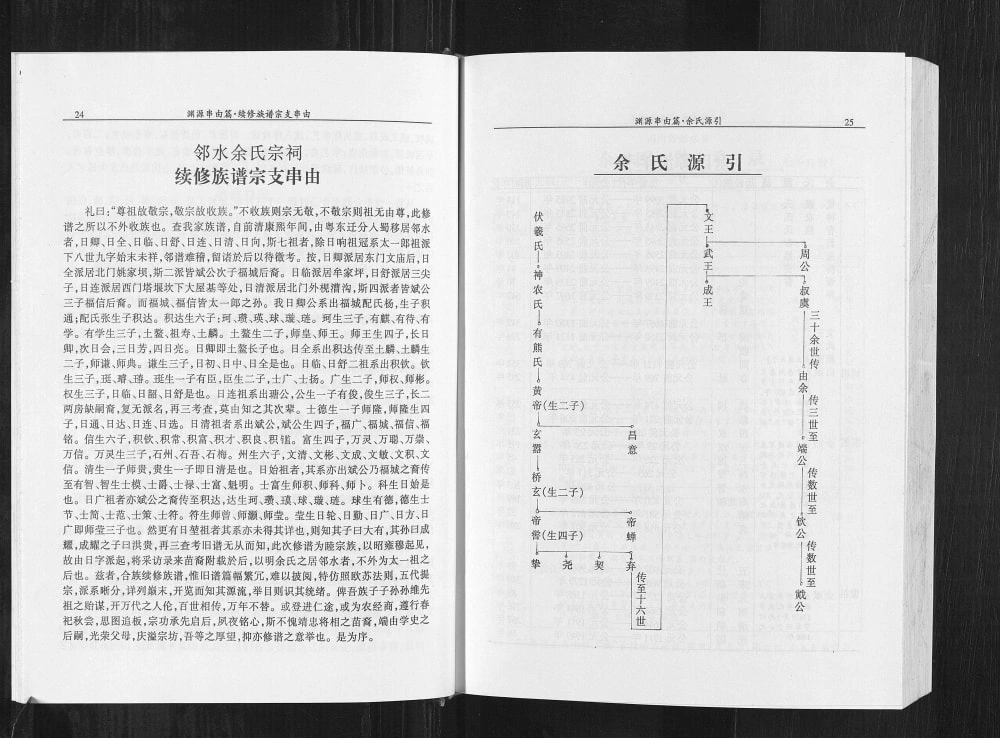 24
渊源串由篇·续修族谱宗支串由
邻水余氏宗祠
续修族谱宗支串由
礼曰:“尊祖故敬宗,敬宗故收族。”不收族则宗无敬,不敬宗则祖无由尊,此修
谱之所以不外收族也。查我家族谱,自前清康熙年间,由粤东迁分入蜀移居邻水
者,日卿、日全、日临、日舒、日连、日清、日向,斯七祖者,除日响祖冠系太一郎祖派
下八世九字始末未祥,邻谱难稽,留诸於后以待徵考。按,日卿派居东门文庙后,日
全派居北门姚家坝,斯二派皆斌公次子福城后裔。日临派居牟家坪,日舒派居三尖
子,日连派居西门塔堰坎下大屋基等处,日清派居北门外枧漕沟,斯四派者皆斌公
三子福信后裔。而福城、福信皆太一郎之孙。我日卿公系出福城配氏杨,生子积
通;配氏张生子积达。积达生六子:珂、瓒、瑛、球、璇、琏。珂生三子,有麒、有待、有
学。有学生三子,土鳌、祖寿、土麟。土鳌生二子,师皇、师王。师王生四子,长日
卿,次日会,三日芳,四日亮。日卿即土鳌长子也。日全系出积达传至土麟、土麟生
二子,师谦、师典。谦生三子,日初、日中、日全是也。日临、日舒二祖系出积钦。钦
生三子,珽、璿、琣。珽生一子有臣,臣生二子,士广、士扬。广生二子,师权、师彬。
权生三子,日临、日韶、日舒是也。日连祖系出瑭公,公生一子有俊,俊生三子,长二
两房缺嗣裔,复无派名,再三考查,莫由知之其次辈。士德生一子师隆,师隆生四
子,日通、日达、日连、日选。日清祖者系出斌公,斌公生四子,福广、福城、福信、福
铭。信生六子,积钦、积常、积富、积才、积良、积镒。富生四子,万灵、万聪、万崇、
万信。万灵生三子,石州、石吾、石梅。州生六子,文清、文彬、文成、文敏、文积、文
信。清生一子师贵,贵生一子即日清是也。日始祖者,其系亦出斌公乃福城之裔传
至有智、智生士模、士爵、士禄、士富、魁明。士富生师积、师科、师卜。科生日始是
也。日广祖者亦斌公之裔传至积达,达生珂、瓒、璞、球、璇、琏。球生有德,德生士
节、士简、士范、士策、士符。符生师曾、师灏、师莹。莹生日轮、日勤、日广、日方、日
广即师莹三子也。然更有日堃祖者其系亦未得其详也,则知其子曰大有,其孙曰成
耀,成耀之子曰洪贵,再三查考旧谱无从而知,此次修谱为睦宗族,以昭雍穆起见,
故由日字派起,将采访录来苗裔附载於后,以明余氏之居邻水者,不外为太一祖之
后也。兹者,合族续修族谱,惟旧谱篇幅繁冗,难以披阅,特仿照欧苏法则,五代提
宗,派系晰分,详列巅末,开览而知其源流,举目则识其统绪。俾吾族子子孙孙维先
祖之贻谋,开万代之人伦,百世相传,万年不替。或登进仁途,或为农经商,遵行春
祀秋尝,思图追板,宗功承先启后,夙夜铭心,斯不愧靖忠将相之苗裔,端由学史之
后嗣,光荣父母,庆溢宗坊,吾等之厚望,抑亦修谱之意举也。是为序。
渊源串由篇·余氏源引
25
余氏源引
伏羲氏
神农氏
有熊氏
黄帝(生二子)
玄嚣
昌意
桥玄(生二子)
帝喾(生四子)
帝蝉
挚
尧
契
弃
传至十六世
文王
武王
成王
周公
叔虞
三十余世传
由余
传三世至
端公
传数世至
钦公
传数世至
戭公